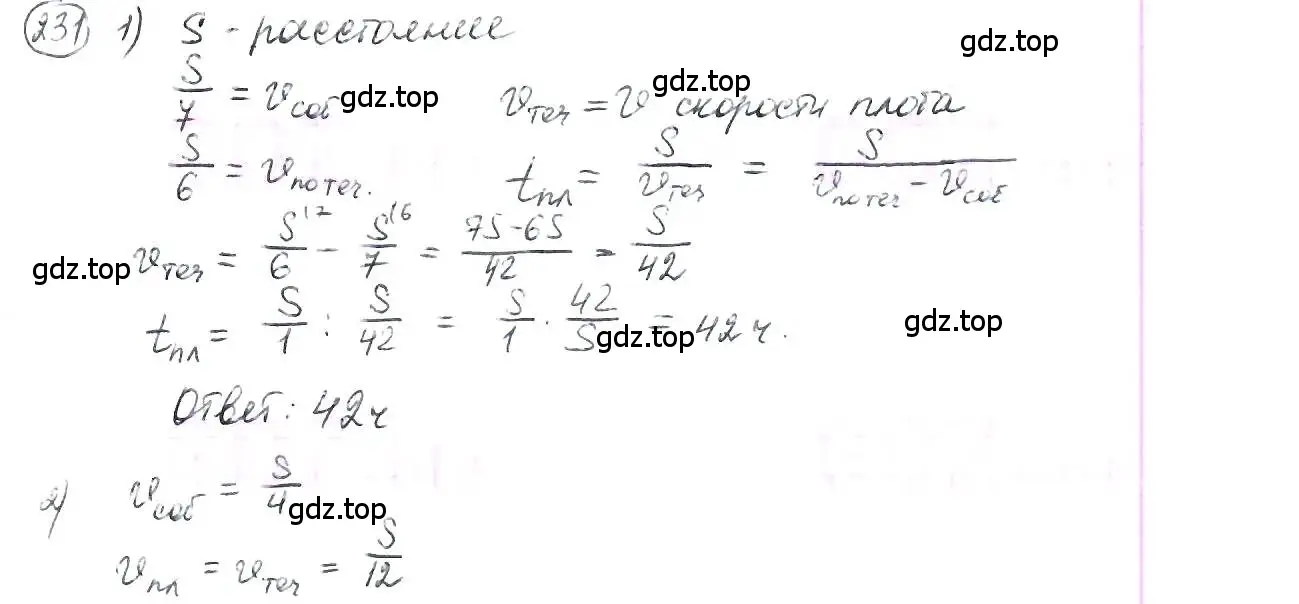 231 1) S - расстояние gdz.top
S/7 = v соб gdz.top v теч = v gdz.top скорости плота
S/6 = v по теч. t пл = S/v теч = S/(v по теч - v соб)
gdz.top v теч = S\7/6 - S\6/7 = (7S-6S)/42 = S/42
t пл = S/1 : S/42 = S/1 · 42/S gdz.top = 42 ч. gdz.top
Ответ: 42 ч
2) v соб = S/4 gdz.top
v пл = v теч = S/12